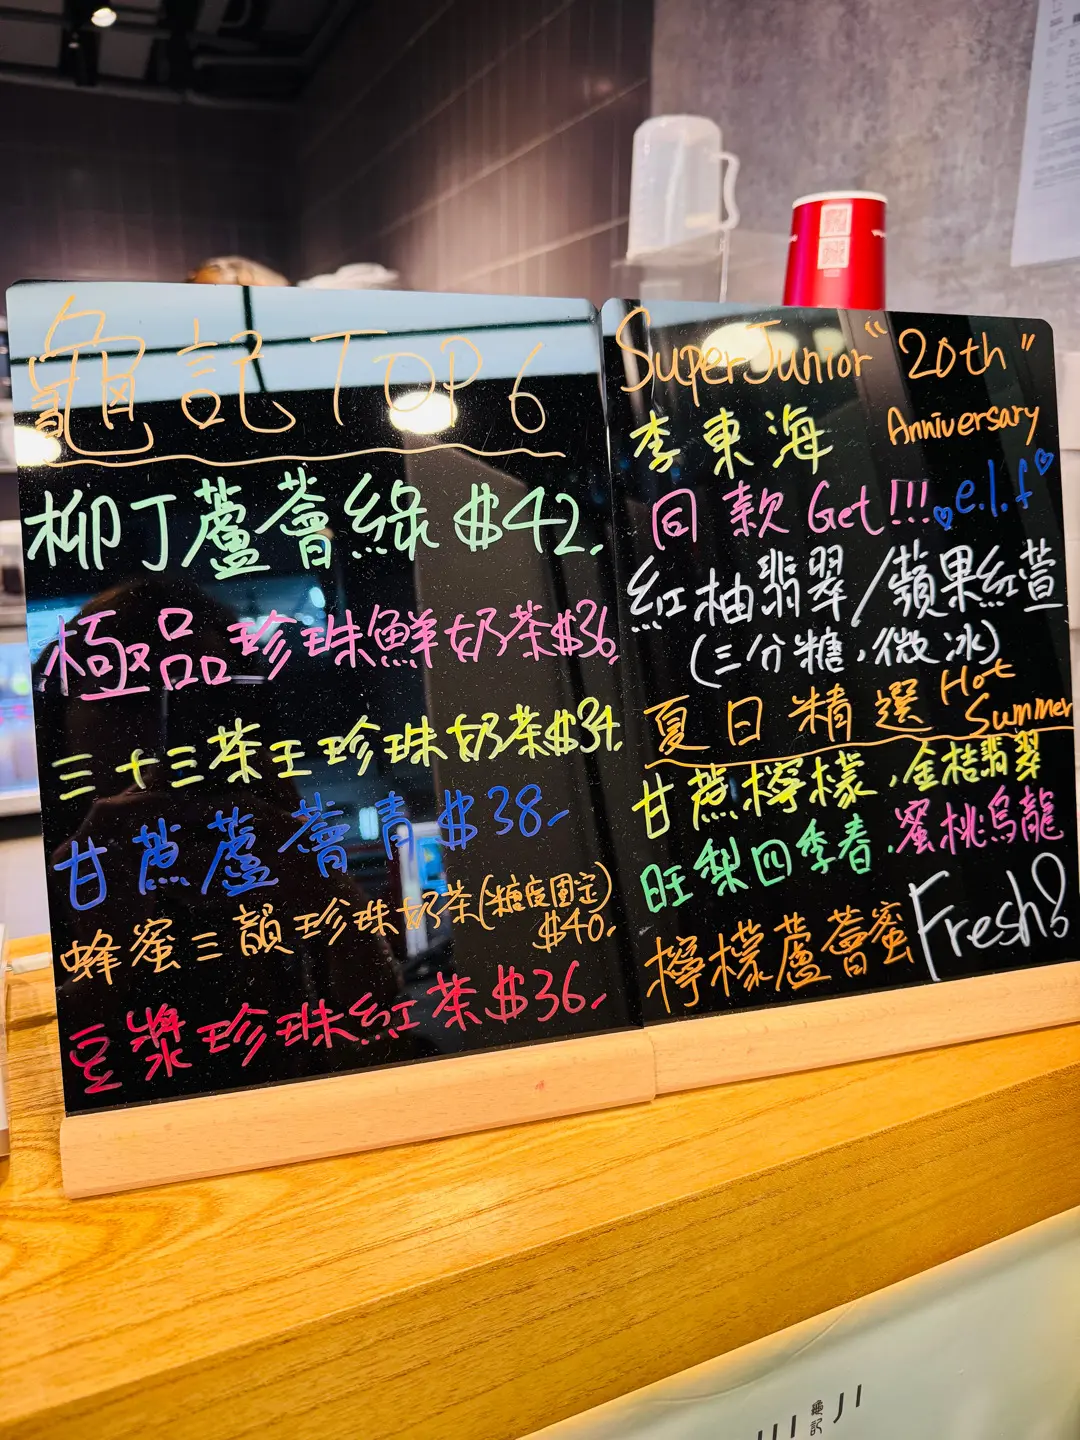 龜記 TOP 6
柳丁蘆薈綠 $42.
極品珍珠鮮奶茶$36.
三十三茶王珍珠奶茶$34.
甘蔗蘆薈青$38.
蜂蜜三韻珍珠奶茶(糖度固定)
$40.
豆漿珍珠紅茶$36.
Super Junior "20th"
Anniversary
李東海
同款Get!!! e.l.f
紅柚翡翠/蘋果紅萱
(三分糖,微冰)
夏日精選 Hot
Summer
甘蔗檸檬,金桔翡翠
旺梨四季春,蜜桃烏龍
檸檬蘆薈蜜 Fresh!
龜記